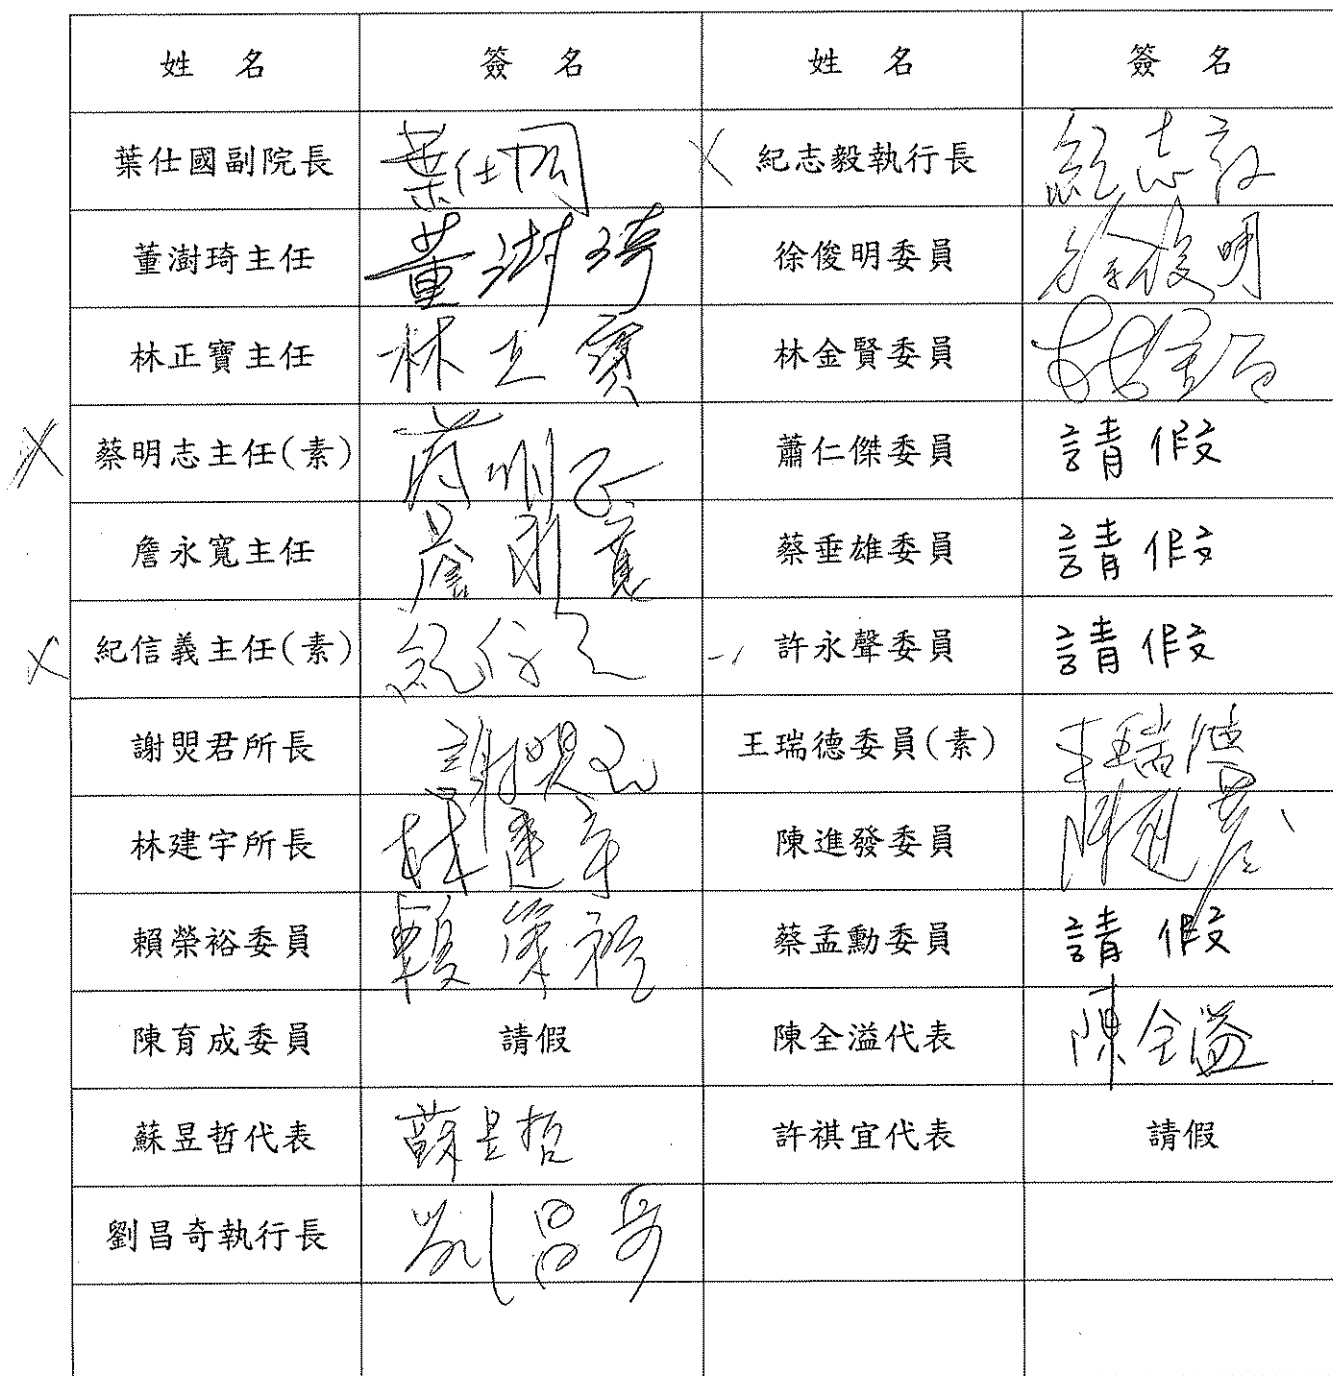 姓 名 簽 名 姓 名 簽 名
葉仕國副院長 葉仕國 紀志毅執行長 紀志毅
董澍琦主任 董澍琦 徐俊明委員 徐俊明
林正寶主任 林正寶 林金賢委員 林金賢
蔡明志主任(素) 蔡明志 蕭仁傑委員 請假
詹永寬主任 詹永寬 蔡垂雄委員 請假
紀信義主任(素) 紀信義 許永聲委員 請假
謝焸君所長 謝焸君 王瑞德委員(素) 王瑞德
林建宇所長 林建宇 陳進發委員 陳進發
賴榮裕委員 賴榮裕 蔡孟勳委員 請假
陳育成委員 請假 陳全溢代表 陳全溢
蘇昱哲代表 蘇昱哲 許祺宜代表 請假
劉昌奇執行長 劉昌奇